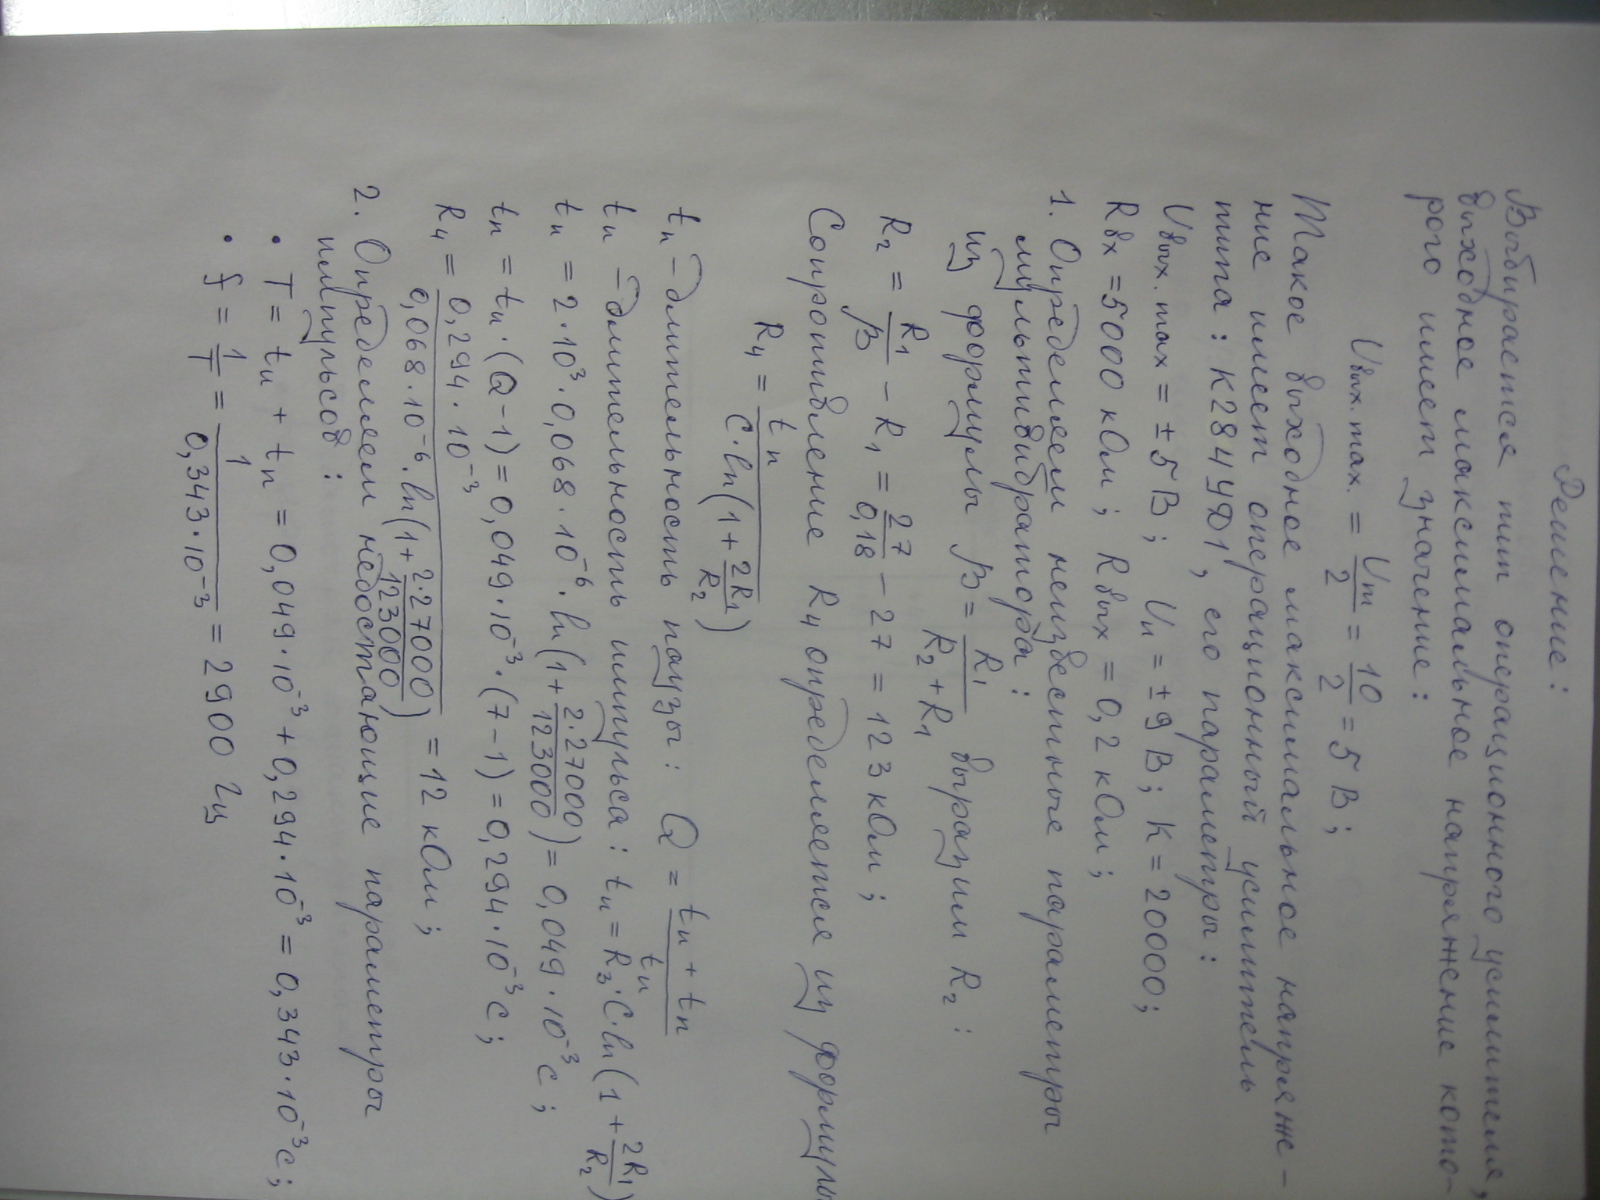 Решение:
Выбирается тип операционного усилителя,
выходное максимальное напряжение кото-
рого имеет значение:
Uвых.max. = Um/2 = 10/2 = 5 В;
Такое выходное максимальное напряже-
ние имеет операционный усилитель
типа: К284УД1, его параметры:
Uвых.max = ±5В; Uп = ±9В; К = 20000;
Rвх = 5000 кОм; Rвых = 0,2 кОм;
1. Определяем неизвестные параметры
мультивибратора:
из формулы β = R1/(R2+R1) выразим R2:
R2 = R1/β - R1 = 27/0,18 - 27 = 123 кОм;
Сопротивление R4 определяется из формулы
R4 = tп/(C·ln(1+2R1/R2))
tп - длительность паузы: Q = (tи + tп)/tи
tи - длительность импульса: tи = R3·C·ln(1+2R1/R2)
tи = 2·10³·0,068·10⁻⁶·ln(1+2·27000/123000) = 0,049·10⁻³с;
tп = tи·(Q-1) = 0,049·10⁻³·(7-1) = 0,294·10⁻³с;
R4 = 0,294·10⁻³/(0,068·10⁻⁶·ln(1+2·27000/123000)) = 12 кОм;
2. Определяем недостающие параметры
импульсов:
• T = tи + tп = 0,049·10⁻³ + 0,294·10⁻³ = 0,343·10⁻³с;
• f = 1/T = 1/(0,343·10⁻³) = 2900 Гц